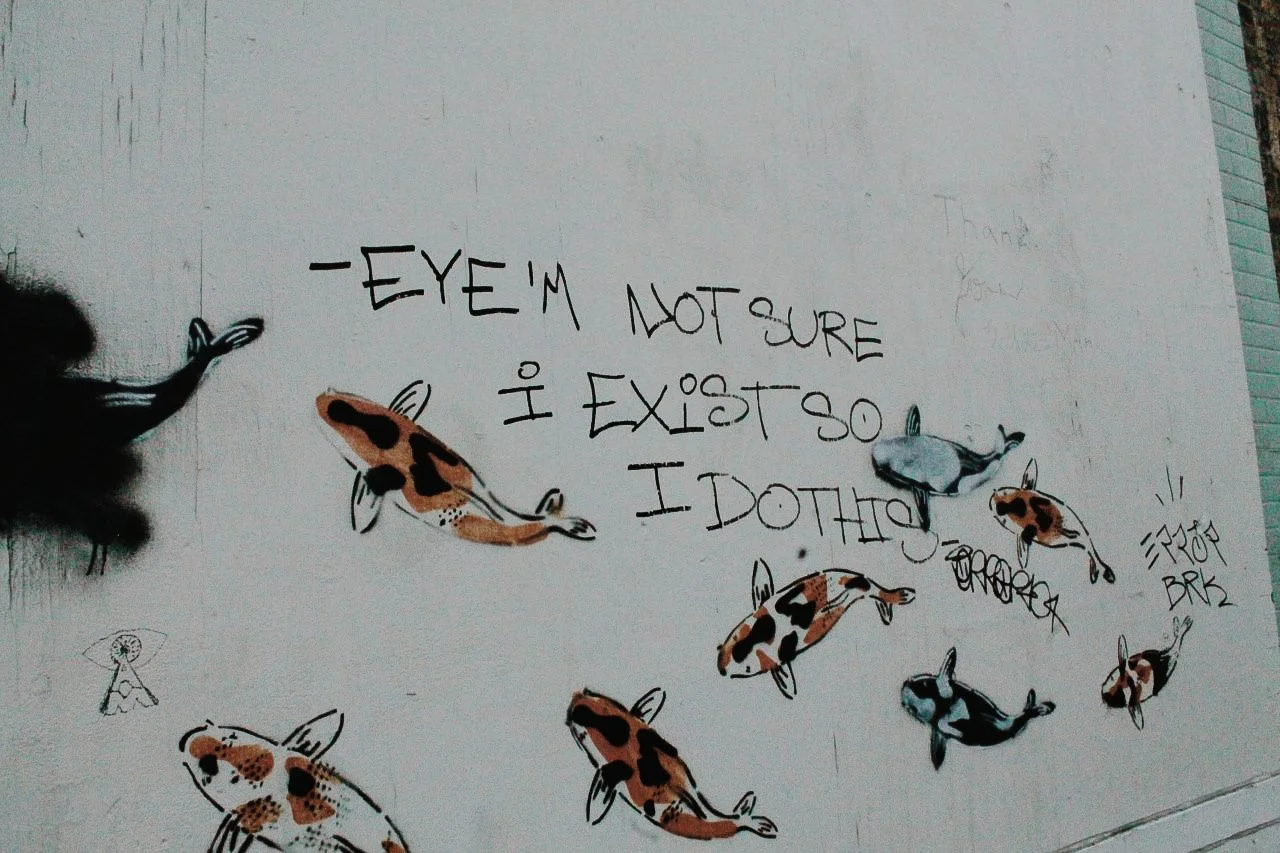 -EYE'M NOT SURE
i EXiST SO
I DO THIS-
Thank
You
BRK